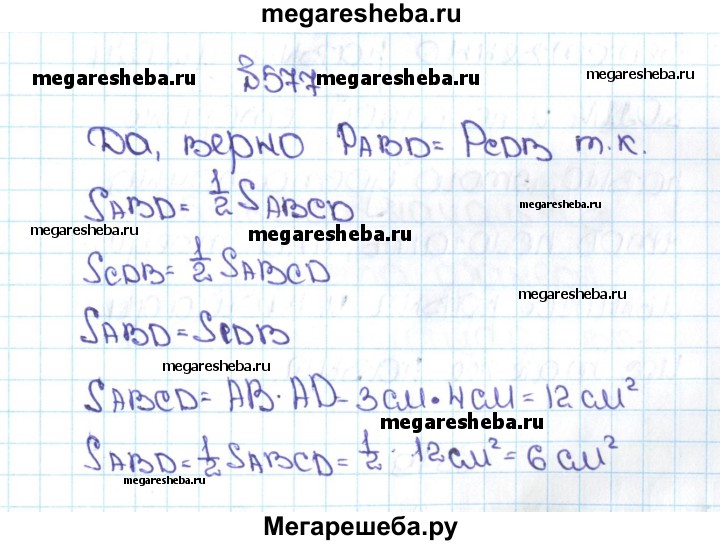 megaresheba.ru
№577 megaresheba.ru megaresheba.ru megaresheba.ru
Да, верно PABD = PCDB т.к.
SABD = 1/2 SABCD megaresheba.ru
megaresheba.ru megaresheba.ru
SCDB = 1/2 SABCD
megaresheba.ru
SABD = SCDB
megaresheba.ru
SABCD = AB · AD = 3 см · 4 см = 12 см²
megaresheba.ru
SABD = 1/2 SABCD = 1/2 · 12 см² = 6 см²
megaresheba.ru
Мегарешеба.ру